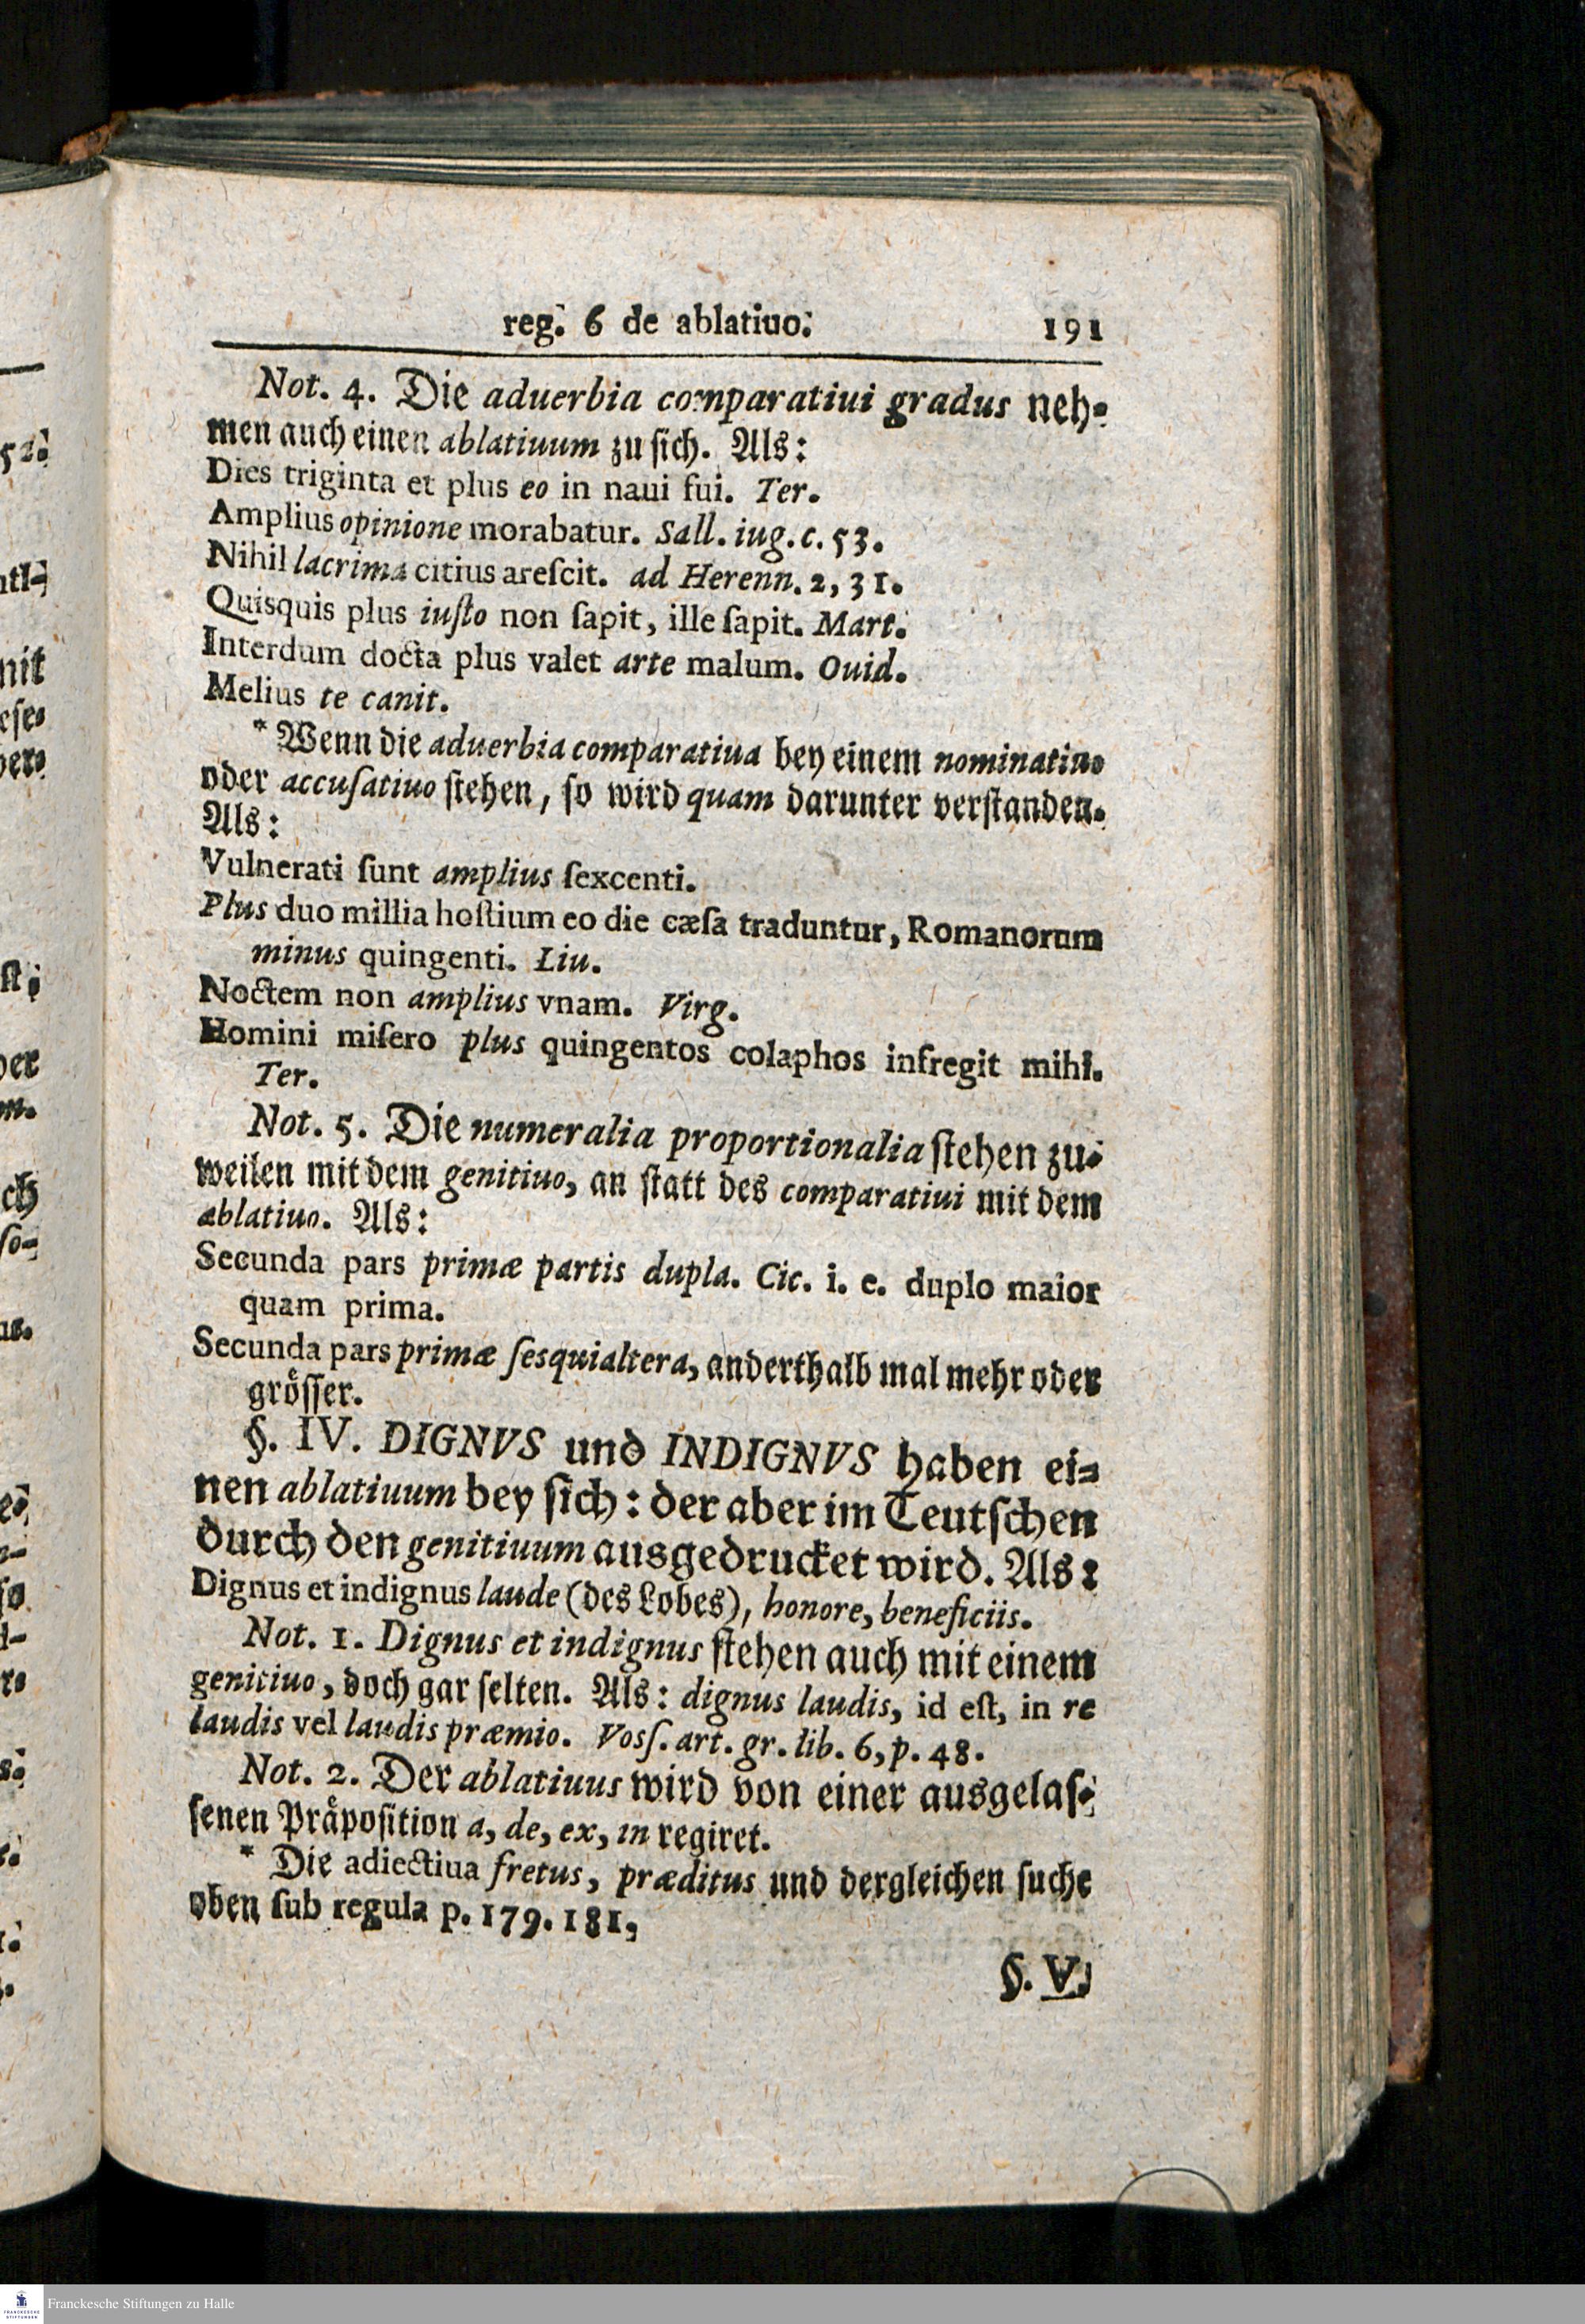 reg. 6 de ablatiuo. 191
Not. 4. Die aduerbia comparatiui gradus neh-
men auch einen ablatiuum zu sich. Als:
Dies triginta et plus eo in naui fui. Ter.
Amplius opinione morabatur. Sall. iug. c. 53.
Nihil lacrima citius areſcit. ad Herenn. 2, 31.
Quisquis plus iuſto non ſapit, ille ſapit. Mart.
Interdum docta plus valet arte malum. Ouid.
Melius te canit.
* Wenn die aduerbia comparatiua bey einem nominatiuo
oder accuſatiuo ſtehen, ſo wird quam darunter verſtanden.
Als:
Vulnerati ſunt amplius ſexcenti.
Plus duo millia hoſtium eo die cæſa traduntur, Romanorum
minus quingenti. Liu.
Noctem non amplius vnam. Virg.
Homini miſero plus quingentos colaphos infregit mihi.
Ter.
Not. 5. Die numeralia proportionalia ſtehen zu-
weilen mit dem genitiuo, an ſtatt des comparatiui mit dem
ablatiuo. Als:
Secunda pars primæ partis dupla. Cic. i. e. duplo maior
quam prima.
Secunda pars primæ ſesquialtera, anderthalb mal mehr oder
gröſſer.
§. IV. DIGNVS und INDIGNVS haben ei-
nen ablatiuum bey ſich: der aber im Teutſchen
durch den genitiuum ausgedrucket wird. Als:
Dignus et indignus laude (des Lobes), honore, beneficiis.
Not. 1. Dignus et indignus ſtehen auch mit einem
genitiuo, doch gar ſelten. Als: dignus laudis, id eſt, in re
laudis vel laudis præmio. Voſſ. art. gr. lib. 6, p. 48.
Not. 2. Der ablatiuus wird von einer ausgelaſ-
ſenen Präpoſition a, de, ex, in regiret.
* Die adiectiua fretus, præditus und dergleichen ſuche
oben ſub regula p. 179. 181,
§. V.
Franckesche Stiftungen zu Halle